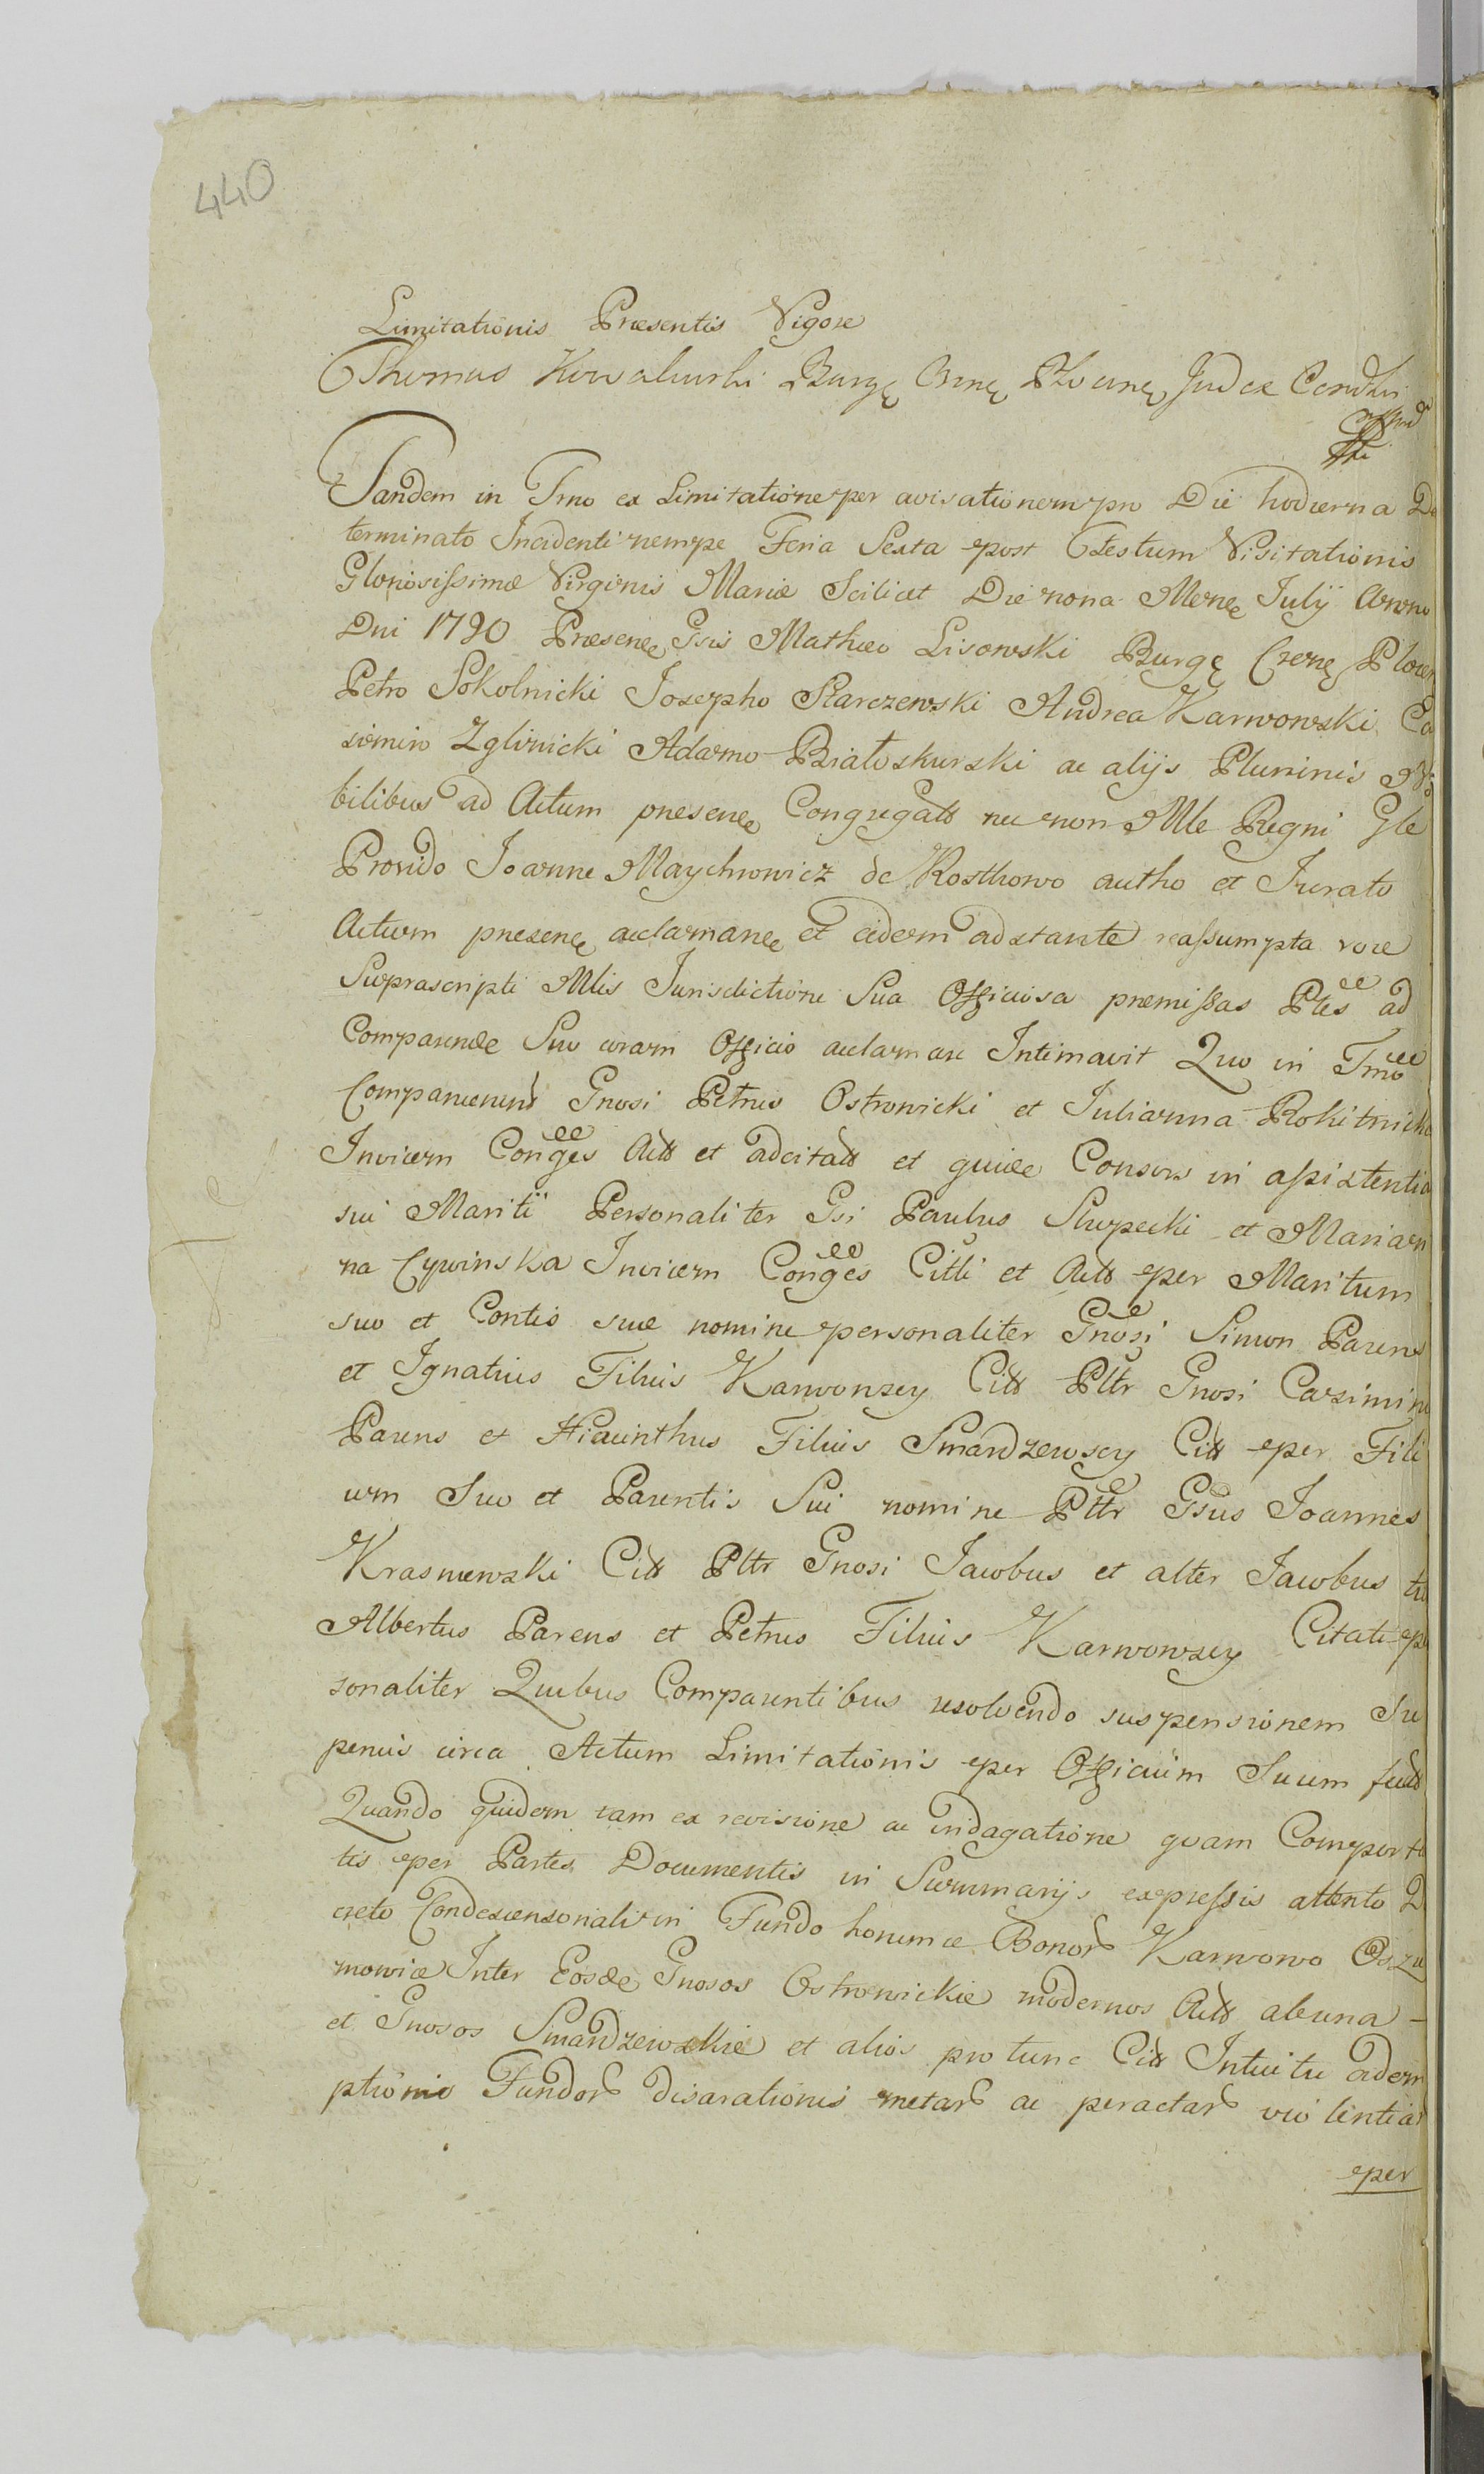 440
Limitationis Præsentis Vigore
Thomas Kowalewski Burgę Judex
Tandem in Trno ex Limitatione per avisationem pro Die hodierna De
terminato Incidenti nempe Feria Sexta post Festum Visitationis
Gloriosissimæ Virginis Mariæ Scilicet Die nona Mense July Anno
Dni 1790 Præsene Gsis Mathæo Lisowski Burgę Crenę Plocen
Petro Sokolnicki Josepho Starczewski Andrea Karwowski Ca
simiro Zglinicki Adamo Białoskurski ac alijs Plurimis No
bilibus ad Actum presene Congregatt nec non Mle Regni Gle
Provido Joanne Maychrowicz de Rosthowo autho et Jurato
Actum presene acclamane et eidem adstante reassumpta voce
Suprascripti Mlis Jurisdictione Sua Officiosa premissas Ptes ad
Comparende Suo coram Officio acclamare Intimavit Quo in Tmo
Comparuerunt Gnosi Petrus Ostrowicki et Julianna Rokitnicka
Invicem Conges Actt et adcitatt et quide Consors in assistentia
sui Mariti Personaliter Gsi Paulus Slupecki et Marian
na Cywinska Invicem Conges Citti et Actt per Maritum
suo et Contis suæ nomine personaliter Gnosi Simon Parens
et Ignatius Filius Karwowscy Citt Pltr Gnosi Casimirus
Parens et Hiacinthus Filius Smardzewscy Citt per Fili
um Suo et Parentis Sui nomine Pltr Gsus Joannes
Krasniewski Citt Pltr Gnosi Jacobus et alter Jacobus tu
Albertus Parens et Petrus Filius Karwowscy Citati per
sonaliter Quibus Comparentibus resolvendo suspensionem Su
perius circa Actum Limitationis per Officium Suum fact
Quando quidem tam ex revisione ac indagatione quam Comporta
tis per Partes Documentis in Summarijs expressis attento De
creto Condescensoriali in Fundo horumce Bonor Karwowo
mowice Inter Eosde Gnosos Ostrowickie modernos Actt ab una
et Gnosos Smardzewskie et alios pro tunc Citt Intuitu adem
ptionis Fundor disarationis metar ac peractar violentiar
per